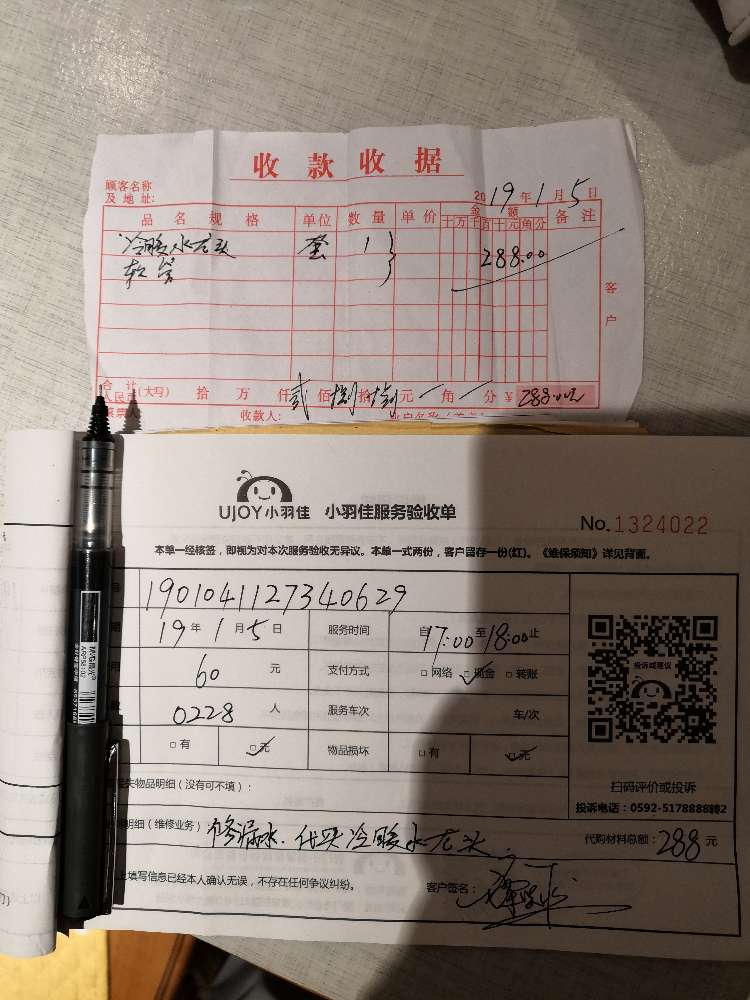 收款收据
顾客名称
及地址:
2019年1月5日
品名规格 单位 数量 单价 金额 备注
十万千百十元角分
冷暖水龙头 套 1 288.00
软管
客户
合计
人民币(大写) 拾 万 仟 贰 佰 捌 拾 捌 元 一 角 一 分 ¥ 288.00元
收款人:
UJOY小羽佳 小羽佳服务验收单
No.1324022
本单一经核签,即视为对本次服务验收无异议。本单一式两份,客户留存一份(红)。《维保须知》详见背面。
号 1901041127340629
期 19年1月5日 服务时间 自17:00至18:00止
用 60 元 支付方式 □网络 ☑现金 □转账
数 0228 人 服务车次 车/次
□有 ☑无 物品损坏 □有 ☑无
投诉或建议
失物品明细(没有可不填):
扫码评价或投诉
投诉电话:0592-5178888转2
明细(维修业务) 修漏水.代买冷暖水龙头. 代购材料总额: 288 元
上填写信息已经本人确认无误,不存在任何争议纠纷。
客户签名:
M&G